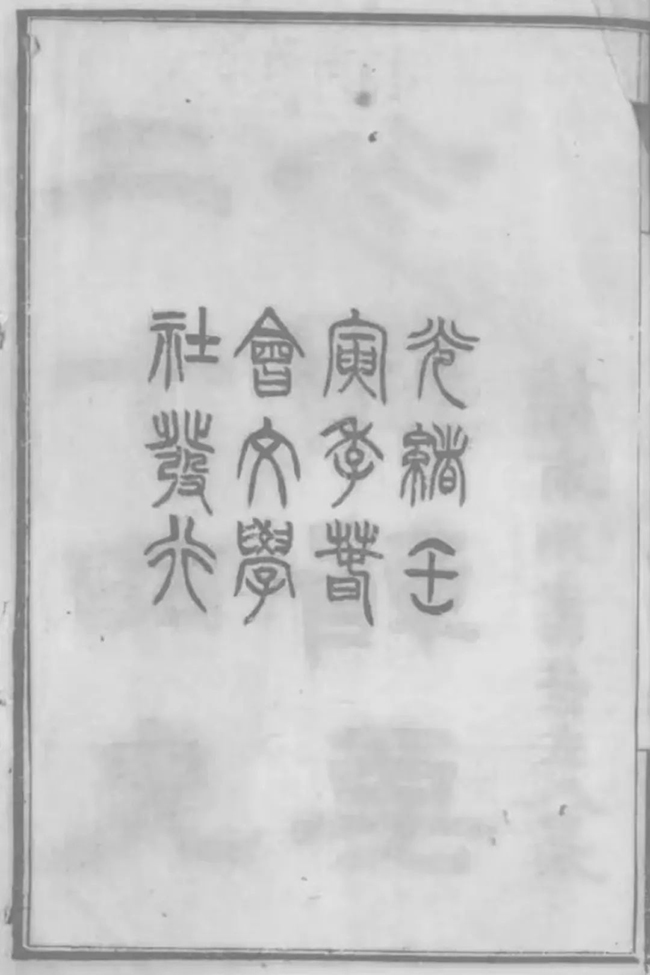 光緒壬
寅季春
會文學
社發行